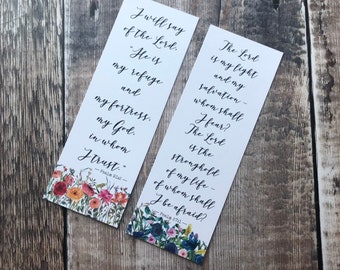 I will say
of the Lord,
"He is
my refuge
and
my fortress,
my God,
in whom
I trust."
The Lord
is my light
and my
salvation -
whom shall
I fear?
The Lord
is the
stronghold
of my life -
of whom shall
I be afraid?